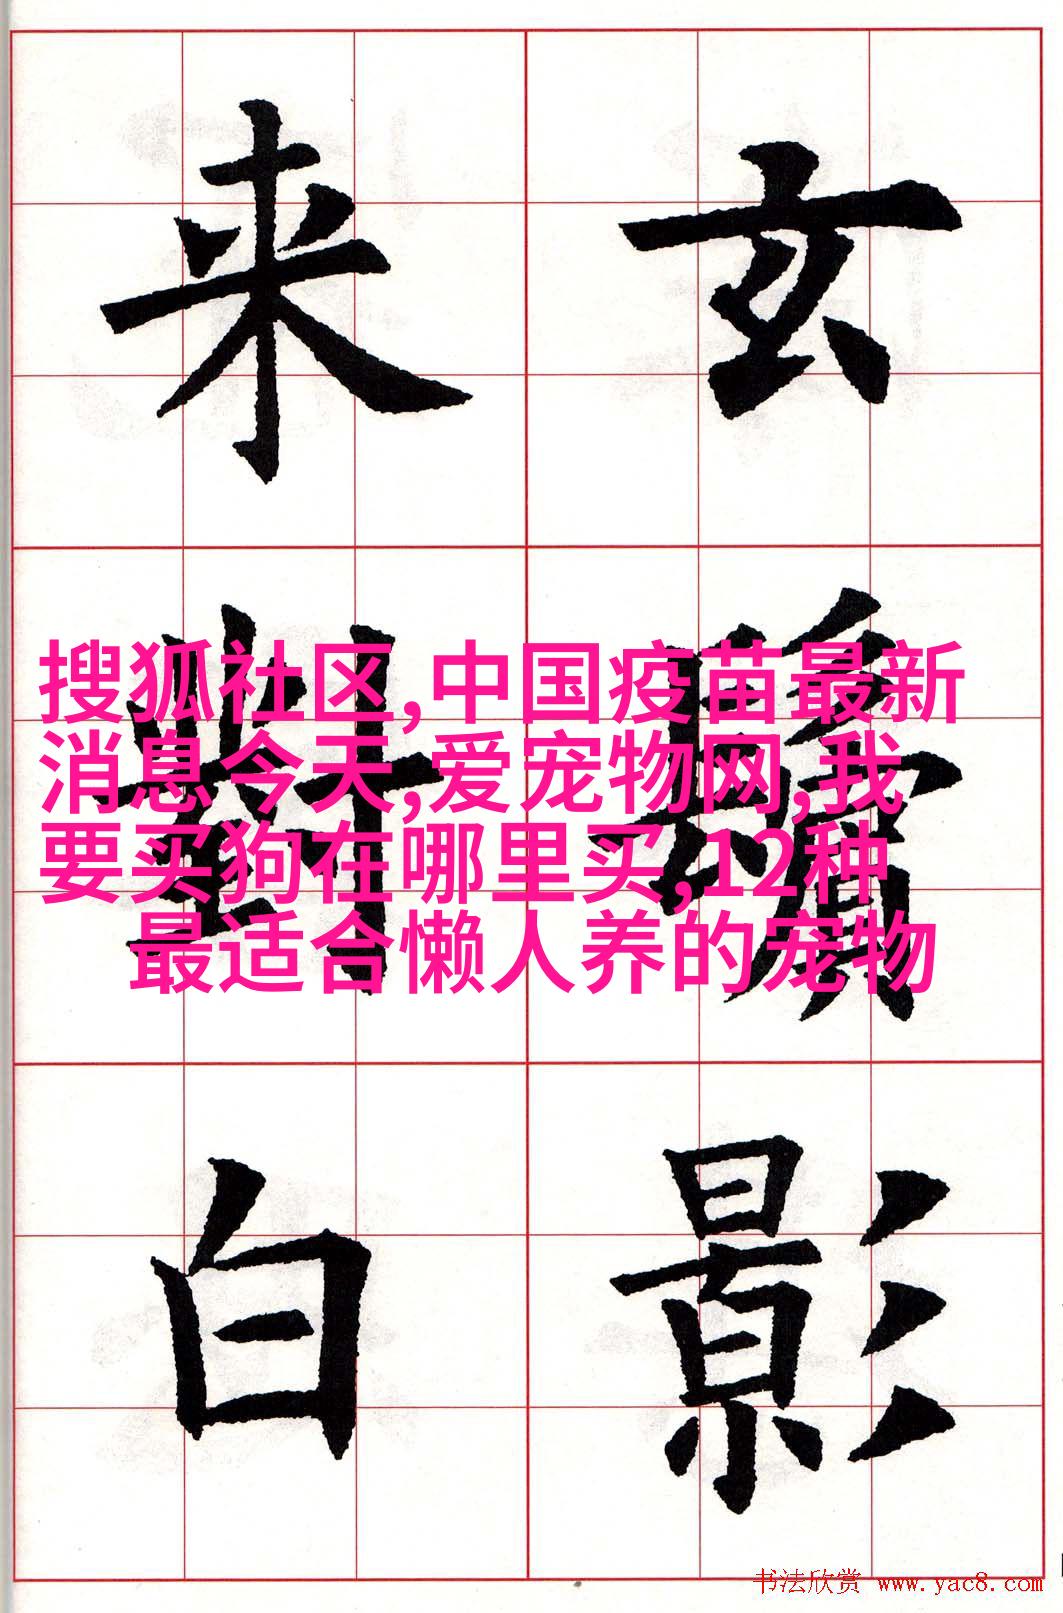 玄鬢影
来對白
搜狐社区,中国疫苗最新
消息今天,爱宠物网,我
要买狗在哪里买,12种
最适合懒人养的宠物
书法欣赏 www.yac8.com